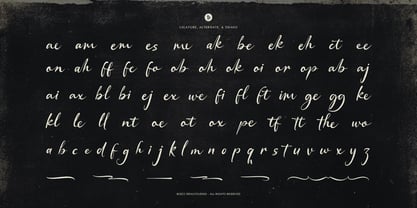 LIGATURE, ALTERNATE, & SWASH
ae am em es mu ak be ek eh et ee
on ah ff fe fo ob oh ok oi or op ab aj
ai ax bl bi ej ex we fi fl ft im ge gg ke
kl le ll nt oe ot ox pe tf tt the wo
a b c e d f g h i j k l m n o p q r s t u v w x y z